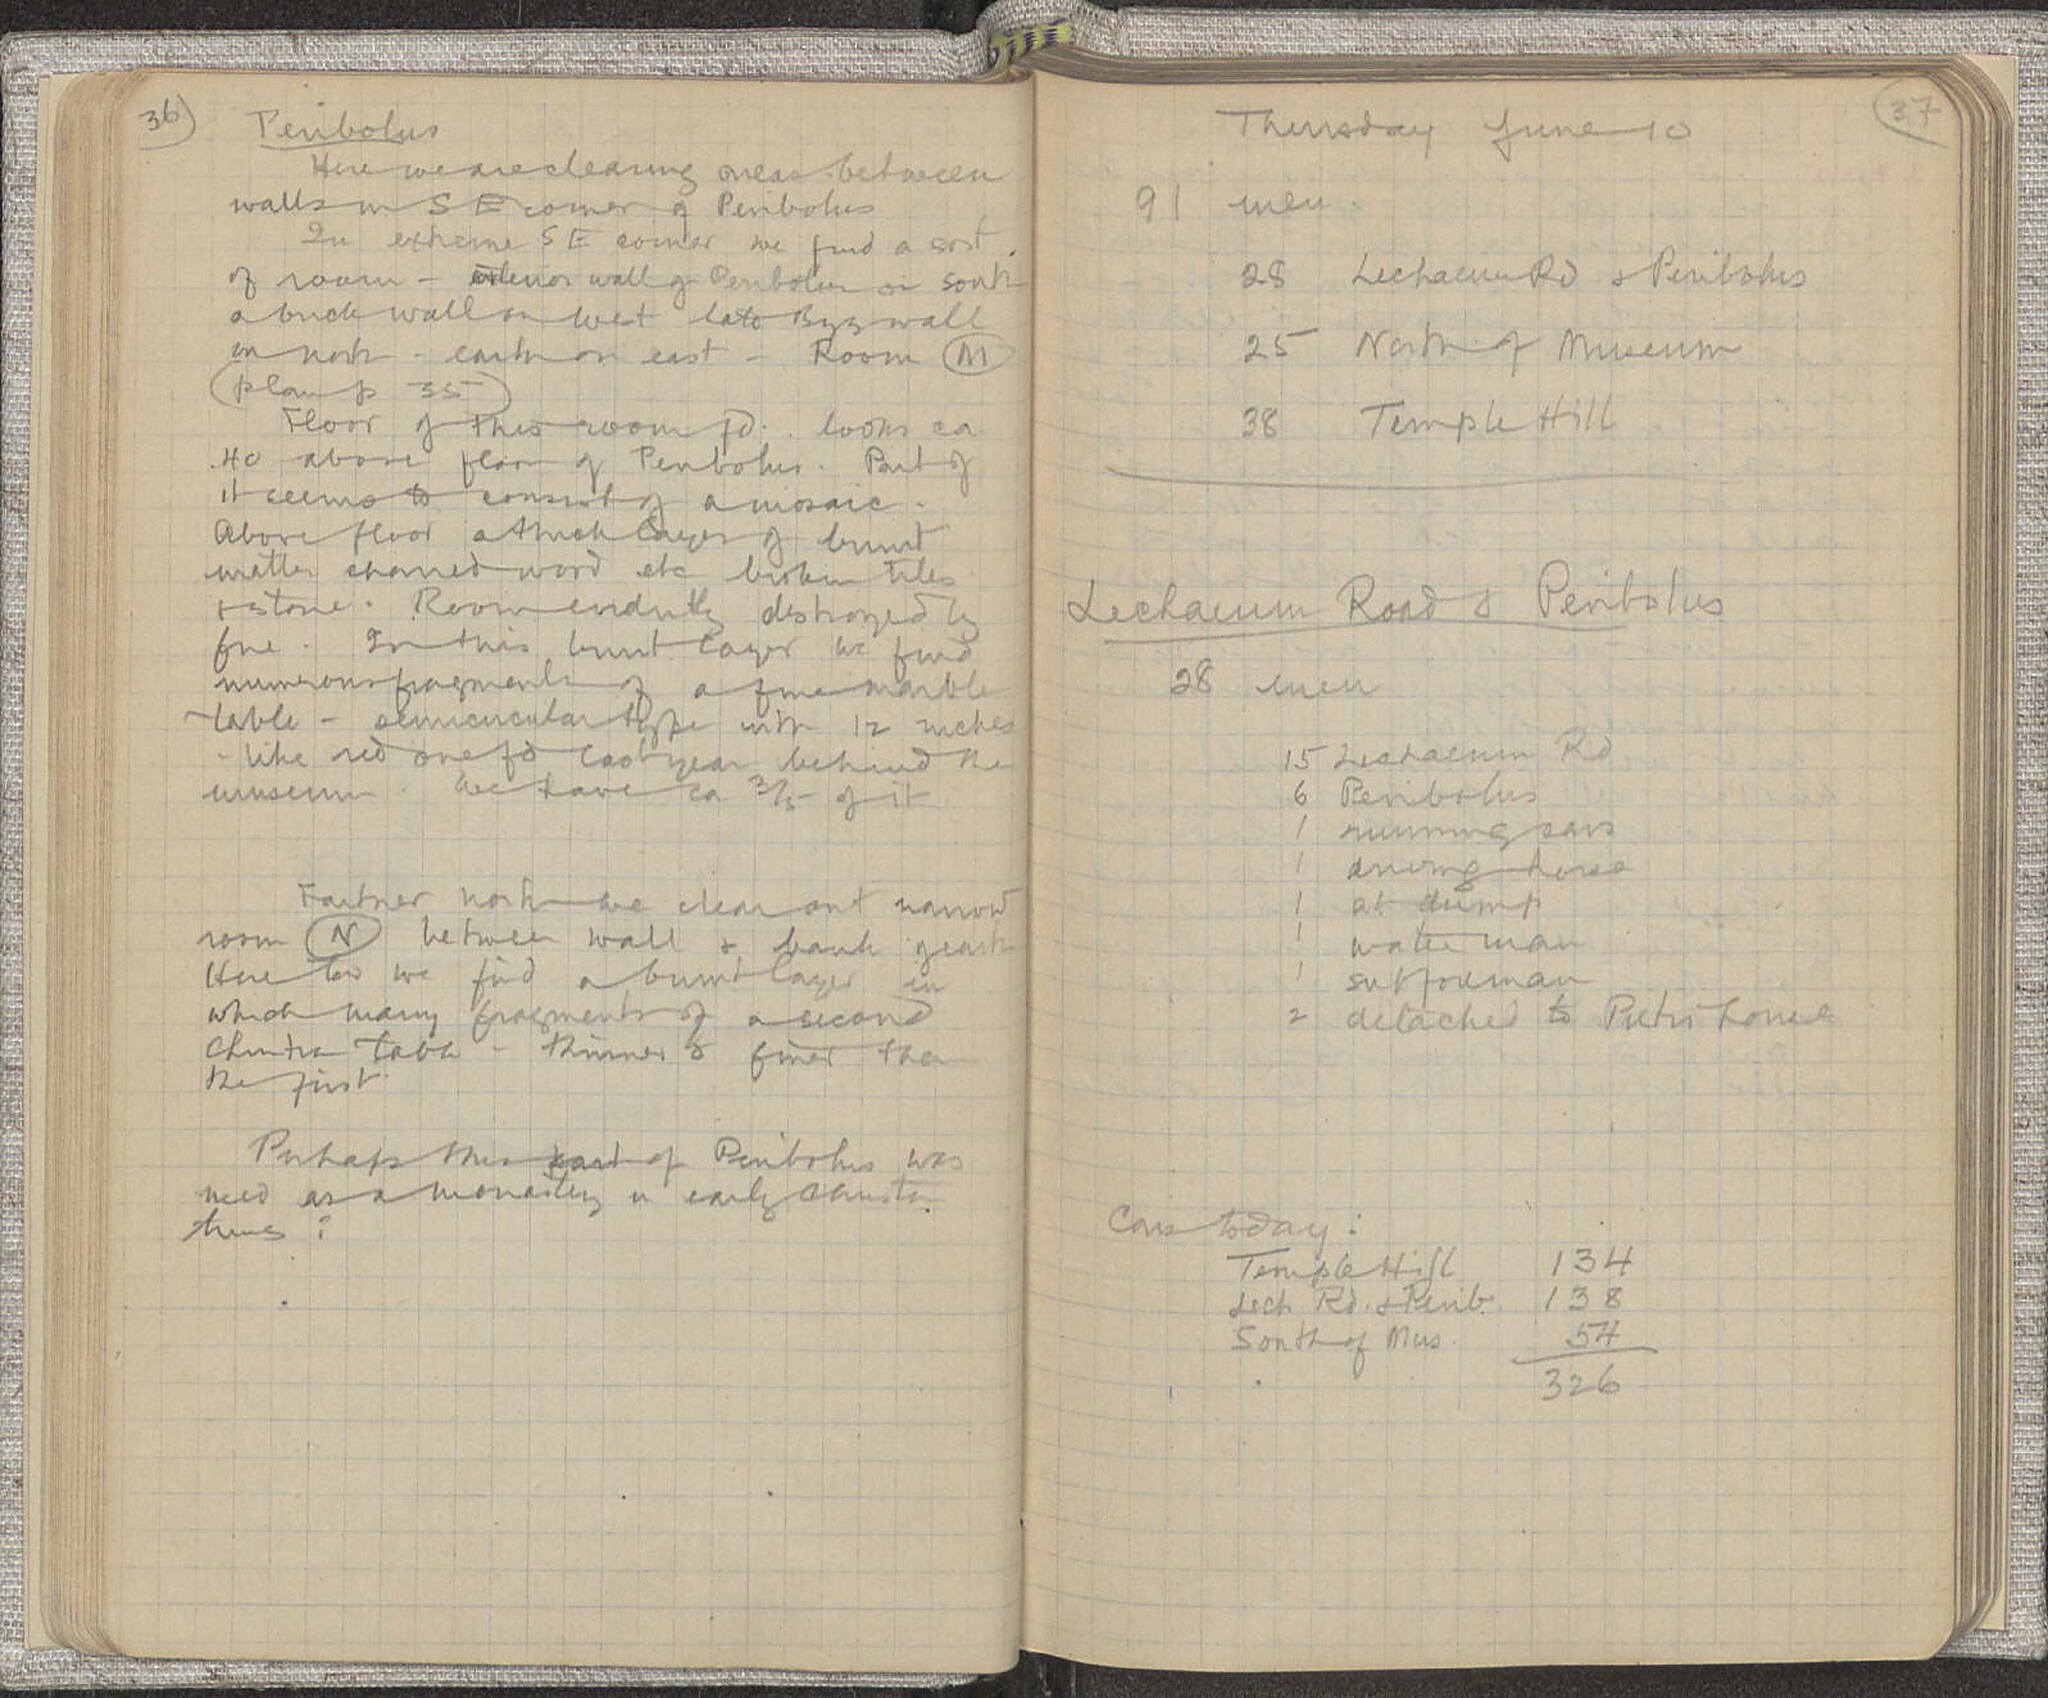 36
Peribolus
Here we are clearing areas between
walls in SE corner of Peribolus
In extreme SE corner we find a sort
of room - exterior wall of Peribolus on south
a brick wall on west late Byz wall
on north - earth on east - Room M
(plan p 35)
Floor of this room fd. looks ca
.40 above floor of Peribolus. Part of
it seems to consist of a mosaic.
Above floor a thick layer of burnt
matter charred wood etc broken tiles
+ stone. Room evidently destroyed by
fire. In this burnt layer we find
numerous fragments of a fine marble
table - semicircular type with 12 niches
- like red one fd last year behind the
museum. We have ca 3/5 of it
Farther north we clear out narrow
room N between wall & bank of earth
Here too we find a burnt layer in
which many fragments of a second
table - thinner & finer than
the first.
Perhaps this part of Peribolus was
used as a monastery in early Christn
times?
37
Thursday June 10
91 men.
28 Lechaeum Rd & Peribolus
25 North of Museum
38 Temple Hill
Lechaeum Road & Peribolus
28 men
15 Lechaeum Rd
6 Peribolus
1 running cars
1 driving horse
1 at dump
1 water man
1 subforeman
2 detached to house
Cars today:
Temple Hill 134
Lech Rd. & Perib. 138
South of Mus. 54
326